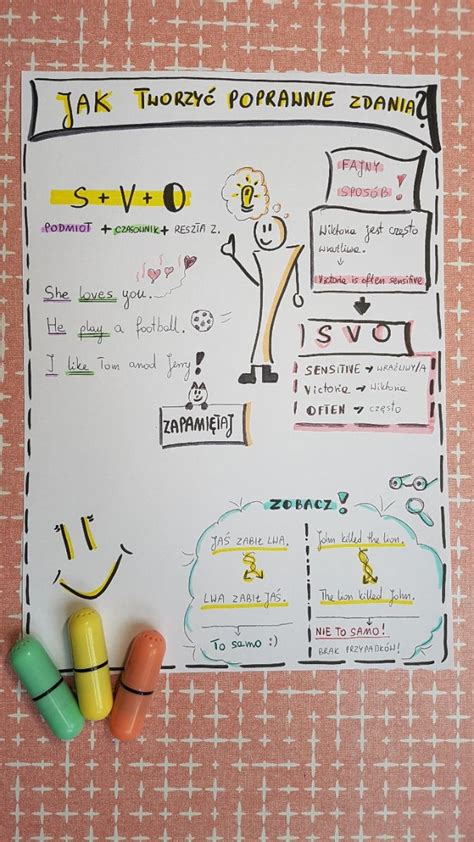 JAK TWORZYĆ POPRAWNIE ZDANIA?
S+V+O
PODMIOT + CZASOWNIK + RESZTA Z.
She loves you.
He play a football.
I like Tom and Jerry!
ZAPAMIĘTAJ
FAJNY
SPOSÓB!
Wiktoria jest często
wrażliwa.
Victoria is often sensitive
SVO
SENSITIVE → WRAŻLIWY/A
Victoria → Wiktoria
OFTEN → często
ZOBACZ!
JAŚ ZABIŁ LWA.
LWA ZABIŁ JAŚ.
To samo :)
John killed the lion.
The lion killed John.
NIE TO SAMO!
BRAK PRZYPADKÓW!